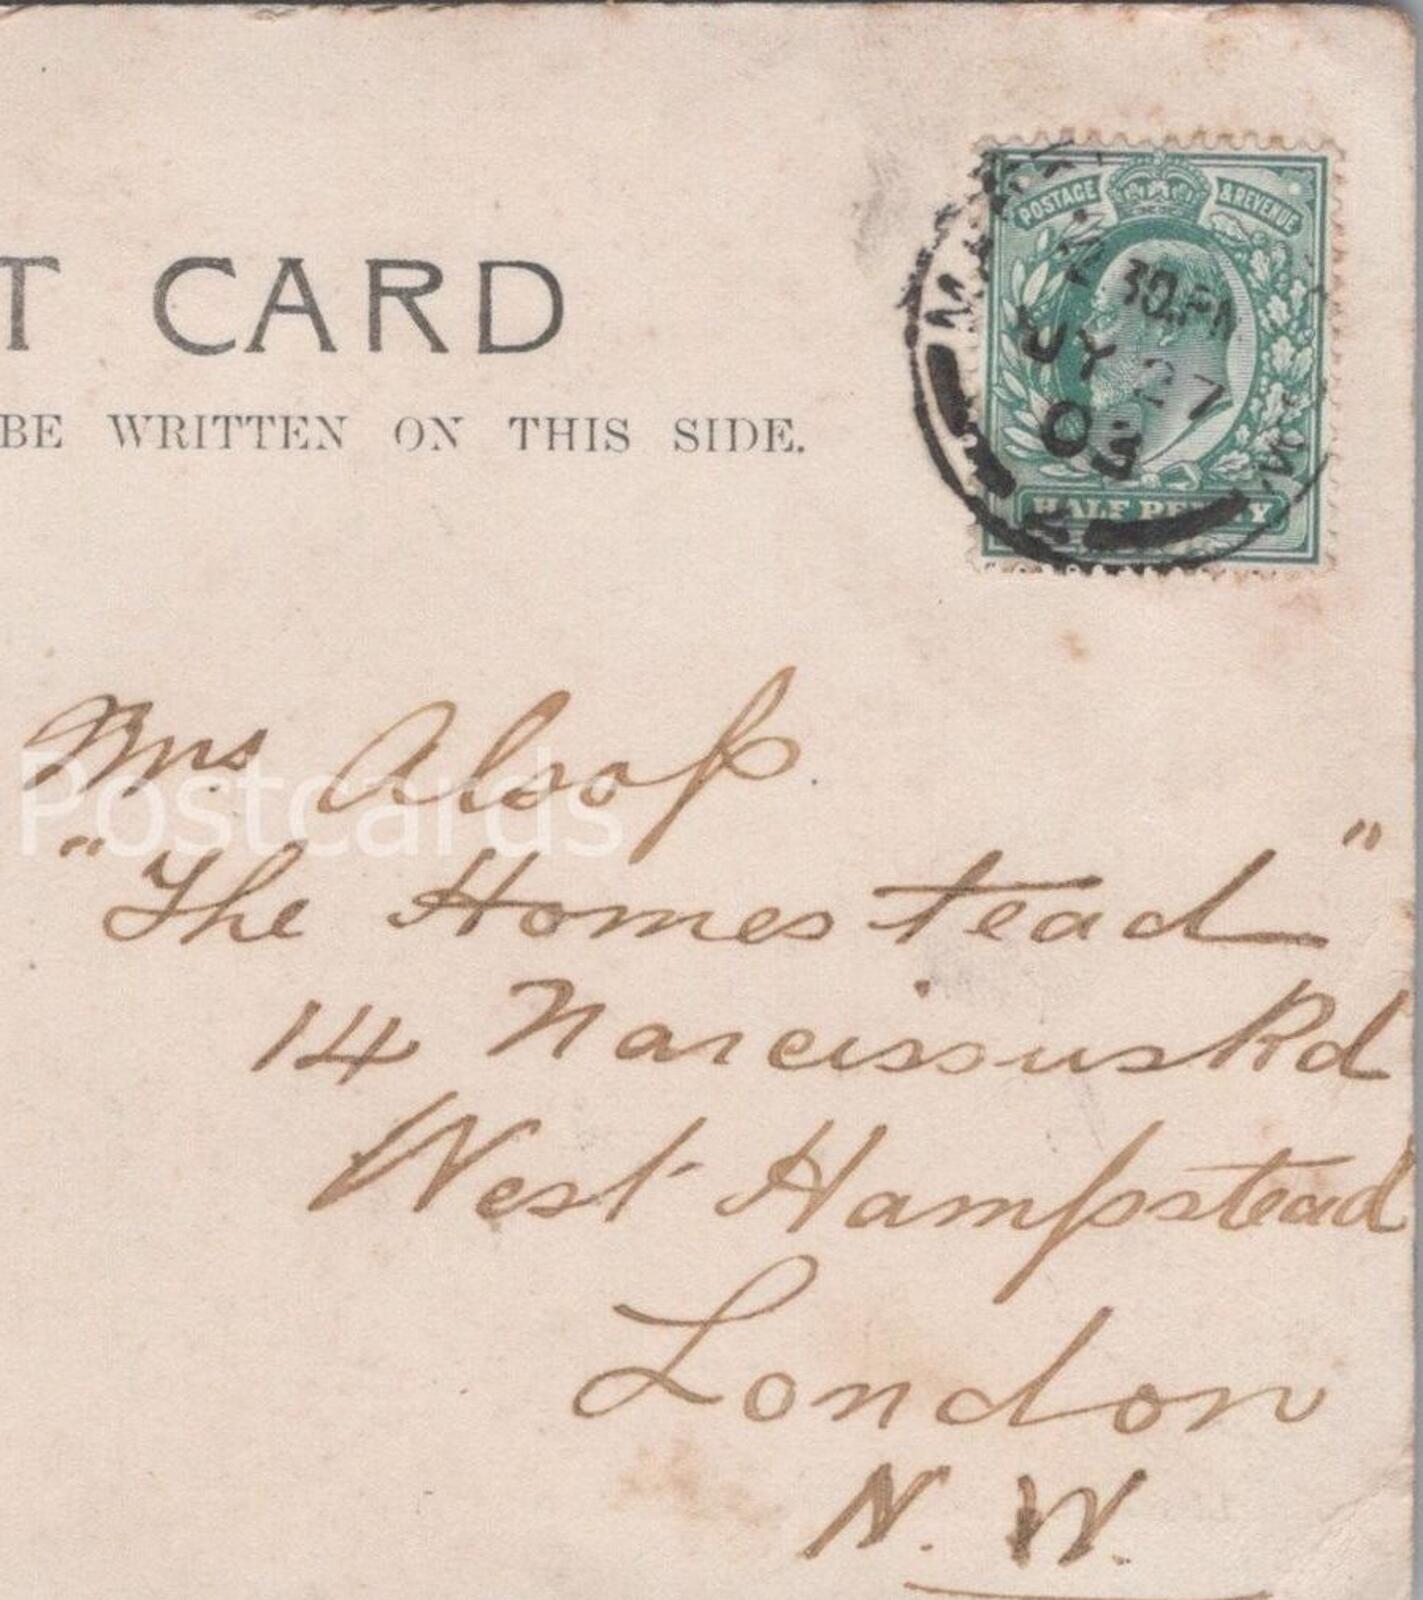 T CARD
BE WRITTEN ON THIS SIDE.
POSTAGE & REVENUE
30 PM
JY 27
03
HALF PENNY
Mrs Alsop.
Postcards
"The Homestead"
14 Narcissus Rd
West Hampstead
London
N. W.